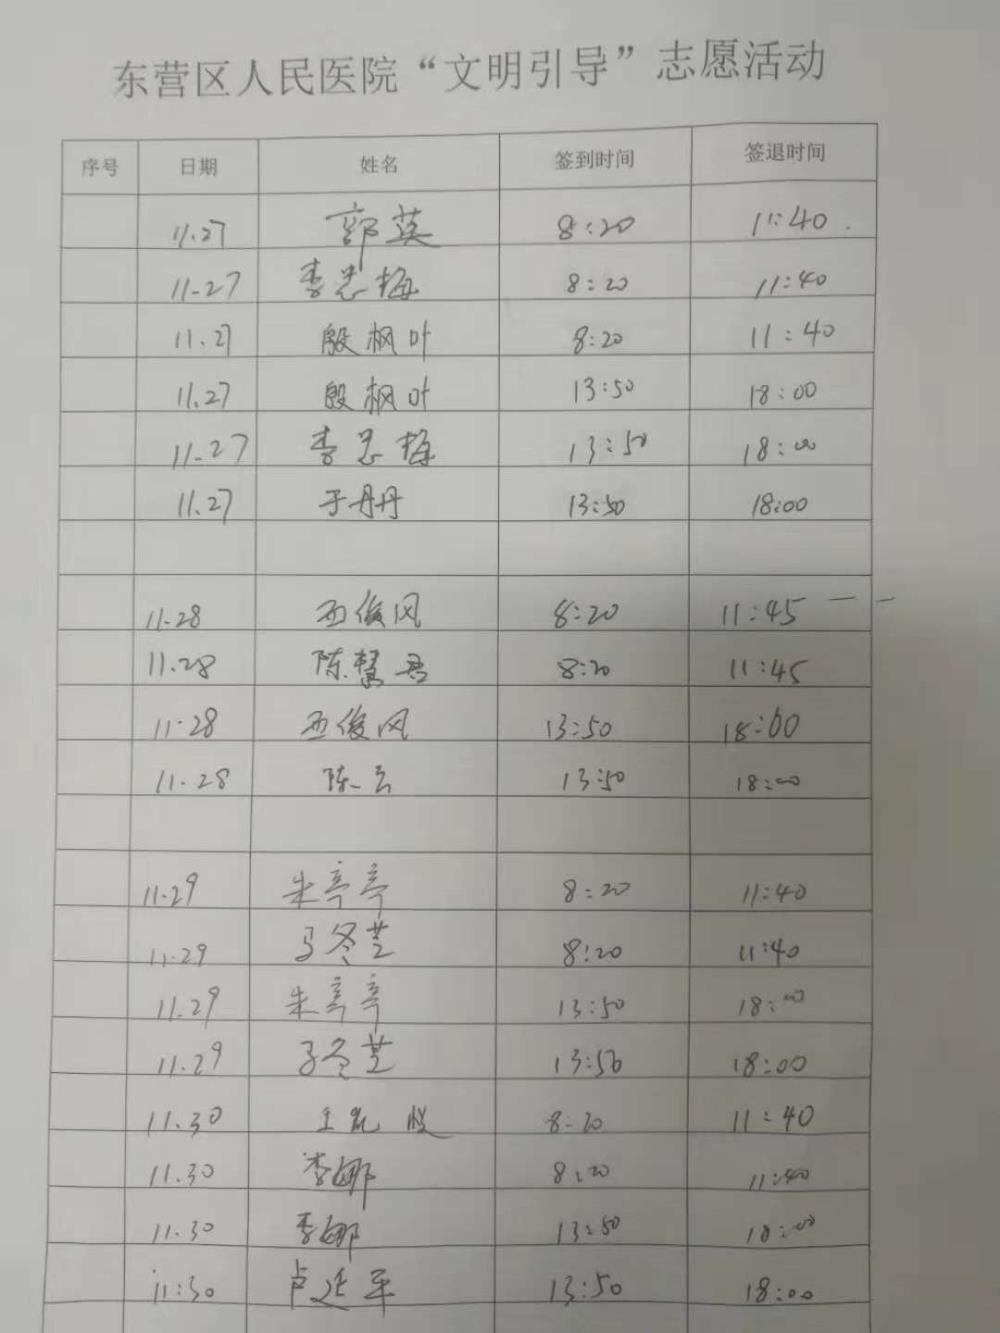 东营区人民医院“文明引导”志愿活动
序号 日期 姓名 签到时间 签退时间
11.27 郭英 8:20 11:40
11-27 李忠梅 8:20 11:40
11.27 殷枫叶 8:20 11:40
11.27 殷枫叶 13:50 18:00
11-27 李忠梅 13:50 18:00
11.27 于丹丹 13:50 18:00
11-28 西俊风 8:20 11:45
11.28 陈慧君 8:20 11:45
11-28 西俊风 13:50 18:00
11-28 陈云 13:50 18:00
11.29 朱亭亭 8:20 11:40
11.29 马冬芝 8:20 11:40
11.29 朱亭亭 13:50 18:00
11.29 马冬芝 13:50 18:00
11.30 王 8:20 11:40
11.30 李娜 8:20 11:40
11.30 李娜 13:50 18:00
11:30 卢延平 13:50 18:00